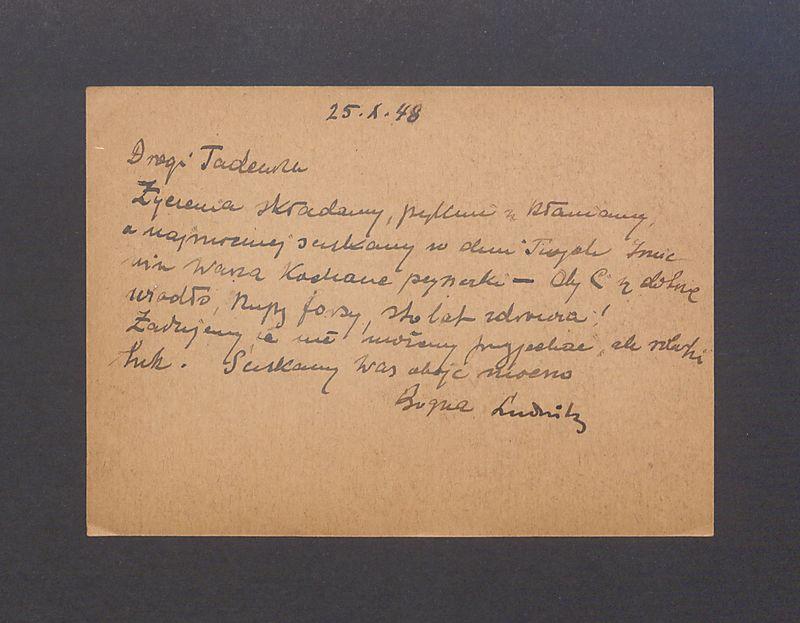 25.X.48
Drogi Tadeuszu
Życzenia składamy, pięknie się kłaniamy,
a najmocniej ściskamy w dniu Twych Imie
nin Wasze Kochane pyszczki — Oby Ci się dobrze
wiodło, kupę forsy, sto lat zdrowia!
Żałujemy, że nie możemy przyjechać, ale
tak. Ściskamy Was oboje mocno
Bogna Ludwik